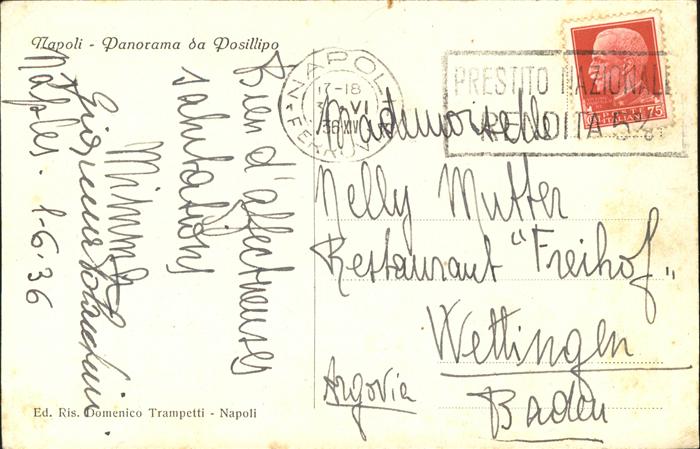 Napoli - Panorama da Posillipo
Bien d'affectueuses
salutations
Naples - 1-6-36
Ed. Ris. Domenico Trampetti - Napoli
NAPOLI
17-18
VI
XIV
FERROVIA
PRESTITO NAZIONALE
RENDITA 5%
POSTE
ITALIANE
75
Mademoiselle
Nelly Mutter
Restaurant "Freihof"
Wettingen
Argovia
Baden